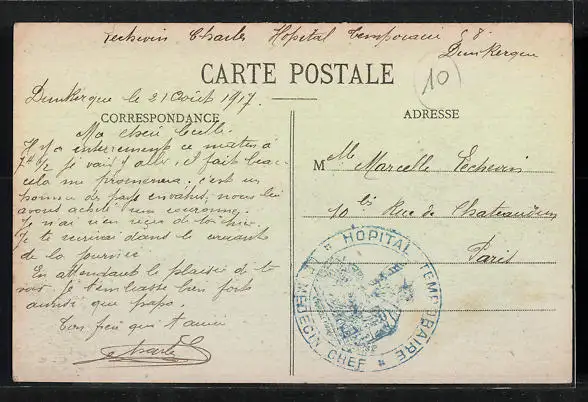 Echevin Charles Hopital Temporaire 58.
Dunkerque
10
CARTE POSTALE
Dunkerque le 21 Août 1917.
CORRESPONDANCE
ADRESSE
Ma chère Celle.
Il y a enterrement ce matin à
7h 1/2 je vais y aller, il fait beau
cela me promenera, c'est un
homme de pays envahis, nous lui
avons acheté une couronne.
Je n'ai rien reçu de toi hier
Je te ecrirai dans le courant
de la journée.
En attendant le plaisir de te
voir je t'embrasse bien fort
ainsi que papa.
Ton frère qui t'aime
Charles
Mlle Marcelle Echevin
10 bis Rue de Chateaudun
Paris
HOPITAL TEMPORAIRE
MEDECIN CHEF